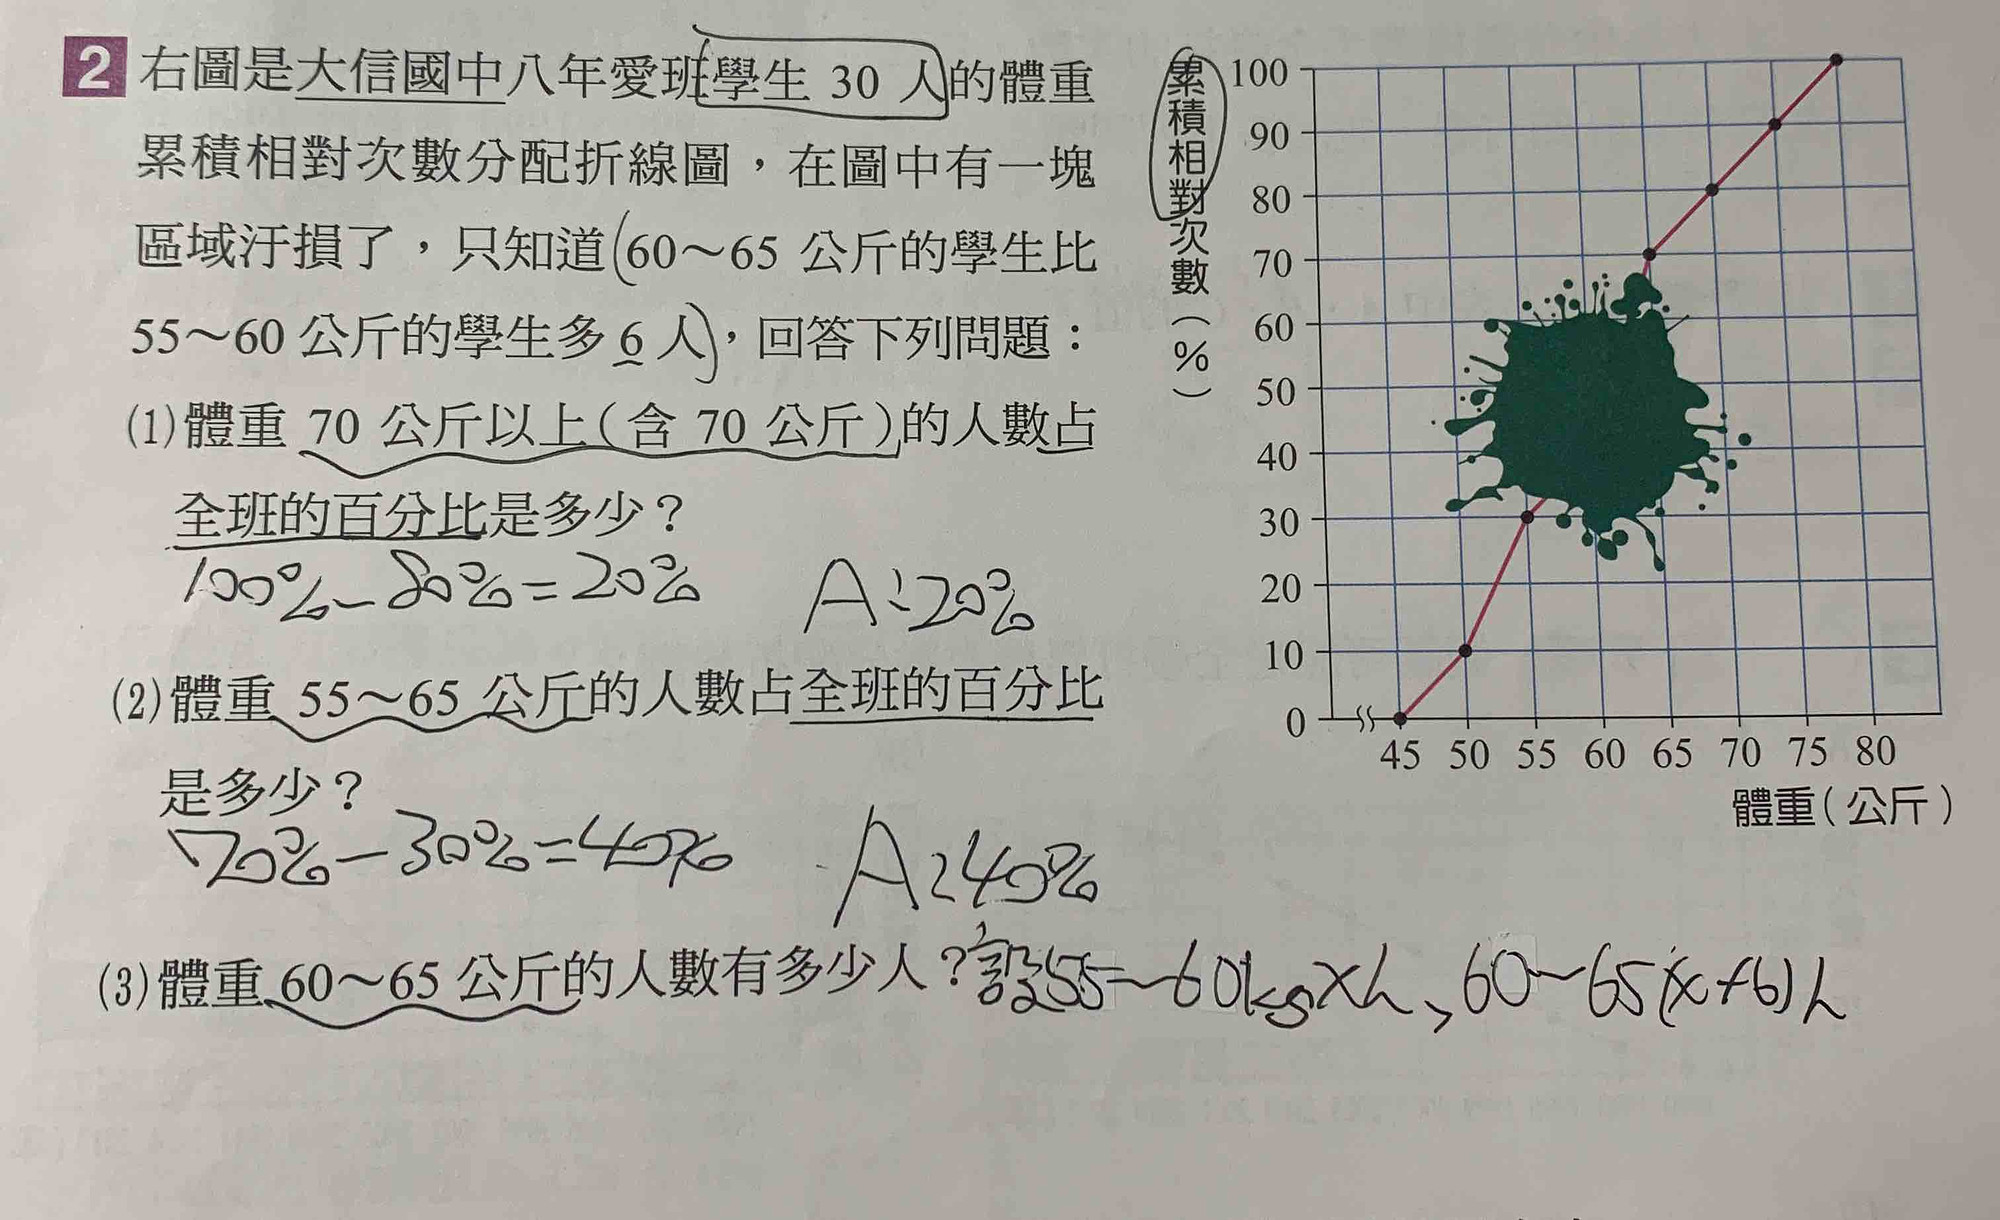 2 右圖是大信國中八年愛班學生 30 人的體重
累積相對次數分配折線圖，在圖中有一塊
區域汙損了，只知道(60～65 公斤的學生比
55～60 公斤的學生多 6 人)，回答下列問題：
(1)體重 70 公斤以上(含 70 公斤)的人數占
全班的百分比是多少？
100%-80%=20% A:20%
(2)體重 55～65 公斤的人數占全班的百分比
是多少？
70%-30%=40% A:40%
(3)體重 60～65 公斤的人數有多少人？設55~60kgx人、60~65(x+6)人
累積相對次數(%)
100
90
80
70
60
50
40
30
20
10
0
45 50 55 60 65 70 75 80
體重(公斤)